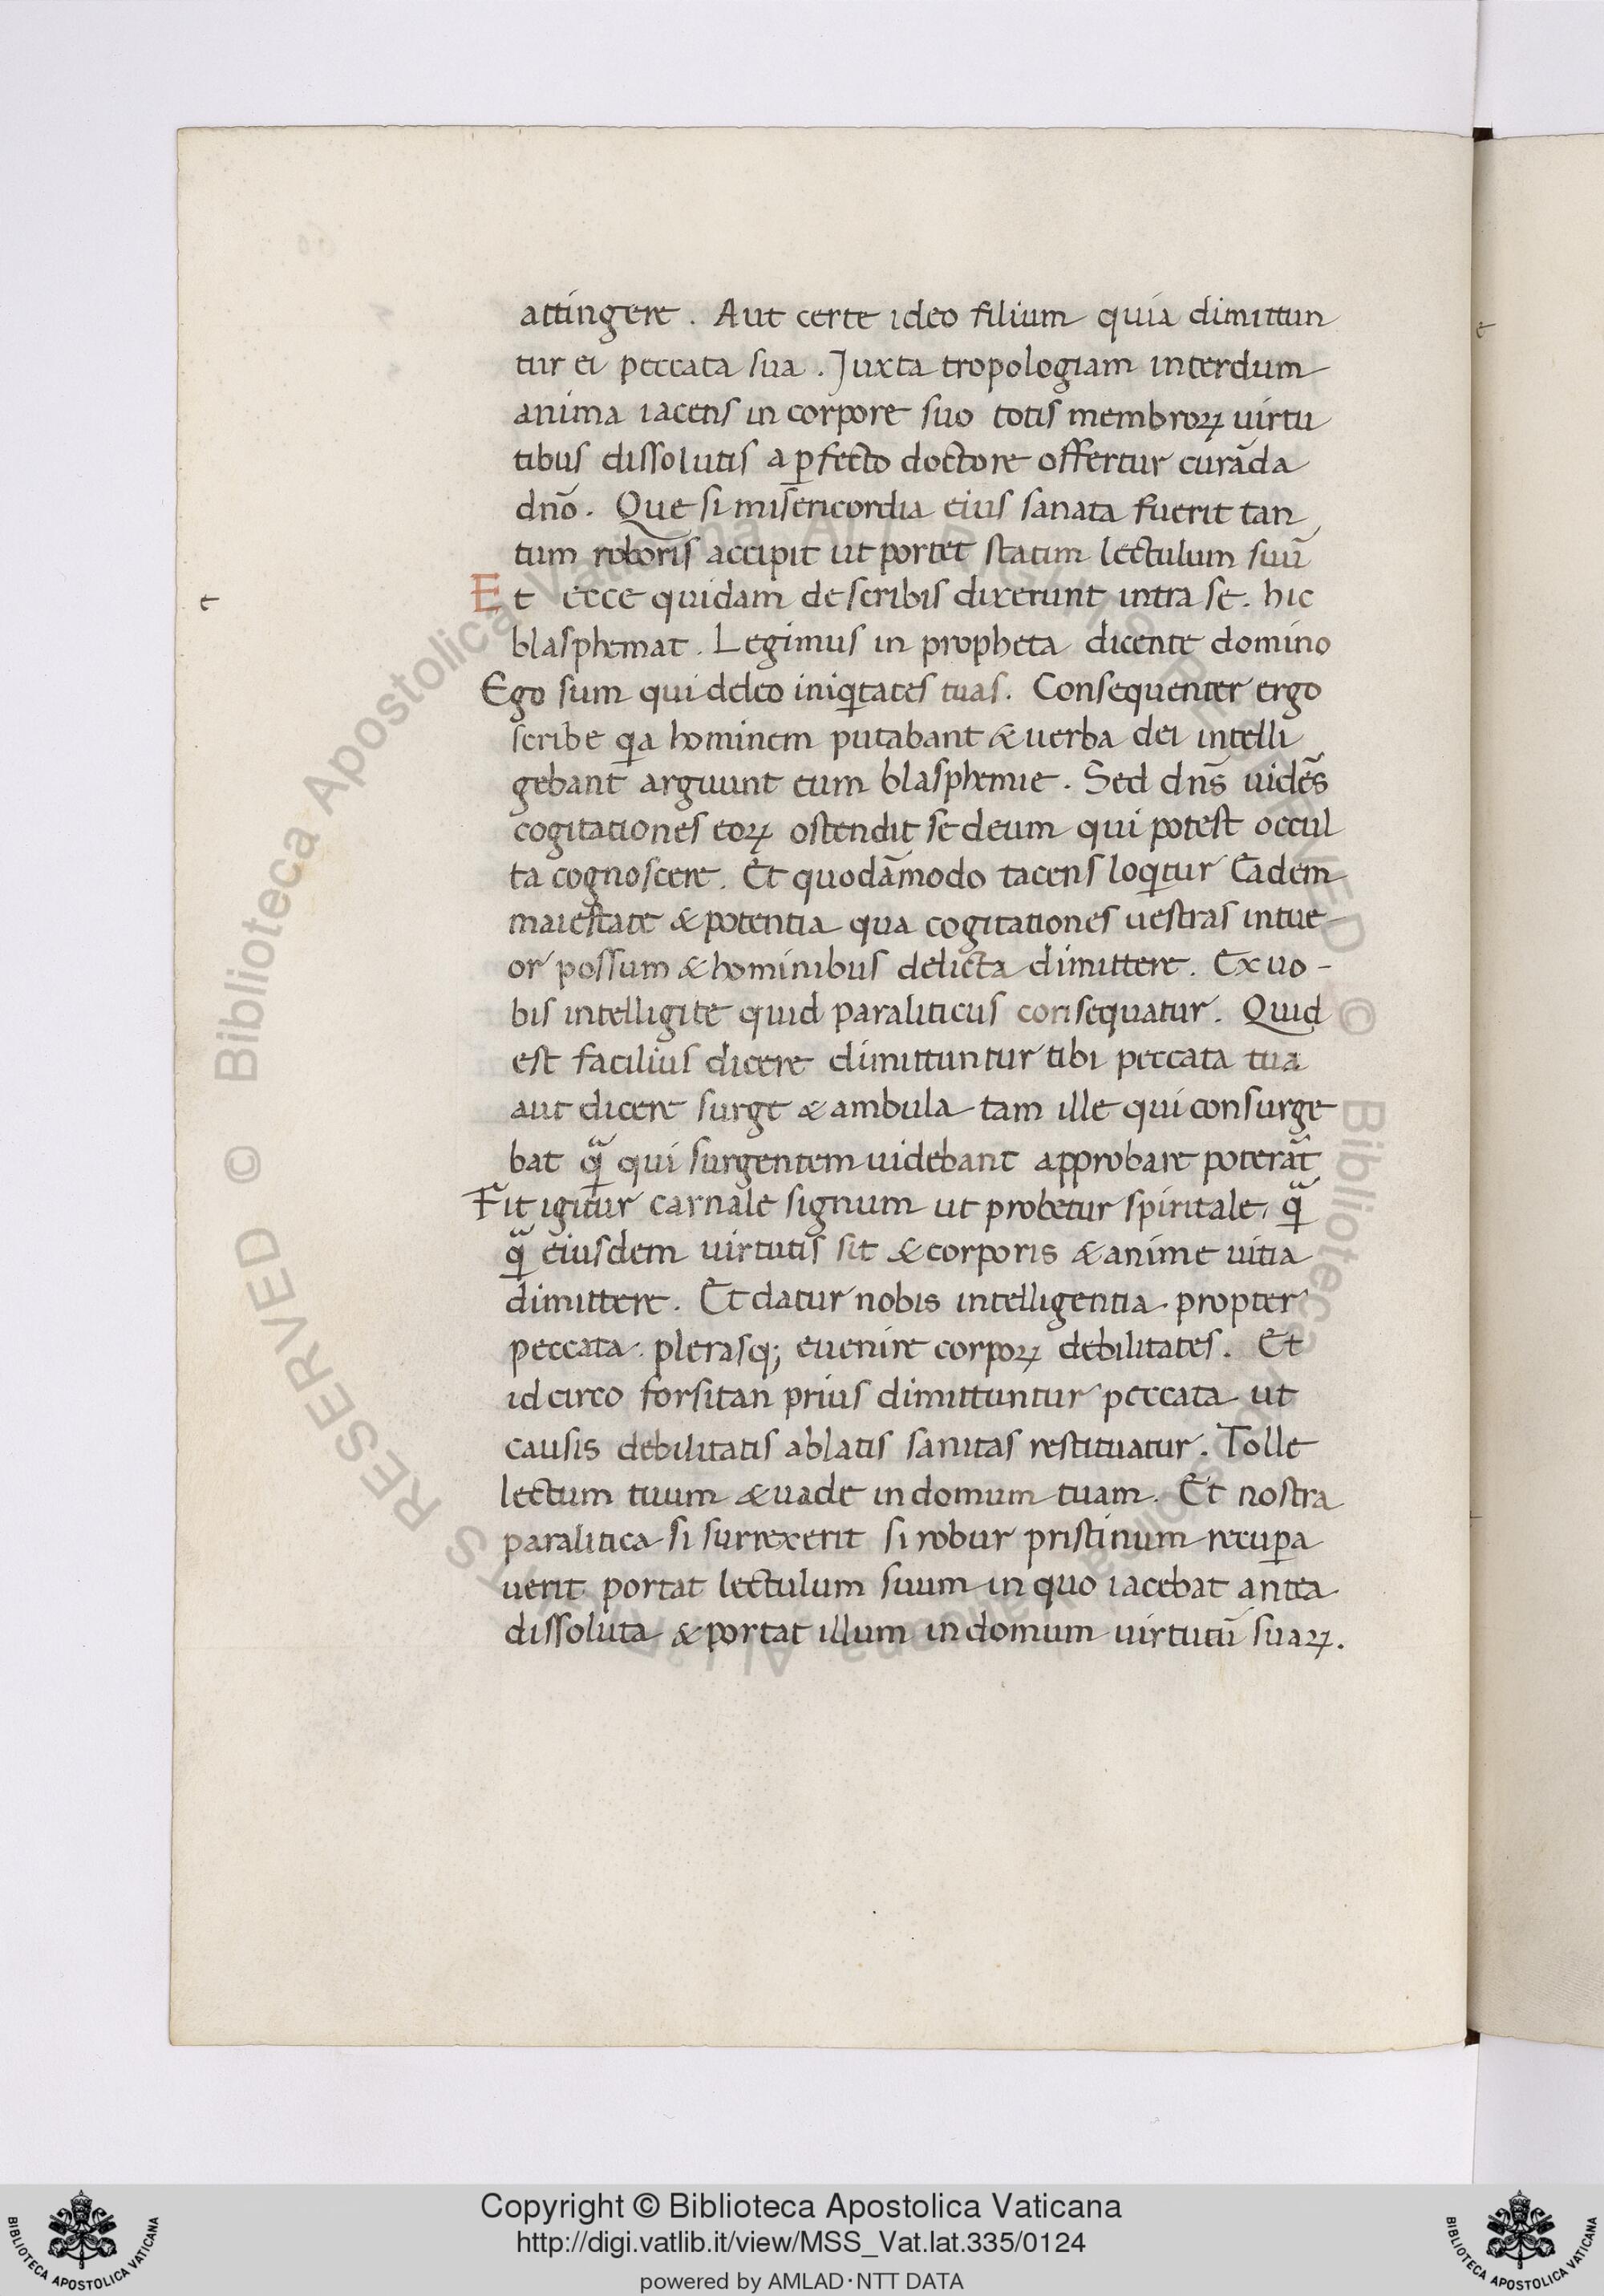 attingere. Aut certe ideo filium quia dimittun
tur ei peccata sua. Juxta tropologiam interdum
anima iacens in corpore suo totis membroꝝ uirtu
tibus dissolutis a ꝑfecto doctore offertur curāda
dn̄o. Que si misericordia eius sanata fuerit tan
tum roboris accipit ut portet statim lectulum suū
Et ecce quidam de scribis dixerunt intra se. hic
blasphemat. Legimus in propheta dicente domino
Ego sum qui deleo iniqͥtates tuas. Consequenter ergo
scribe qͥa hominem putabant & uerba dei intelli
gebant arguunt eum blasphemie. Sed dn̄s uidēs
cogitationes eoꝝ ostendit se deum qui potest occul
ta cognoscere. Et quodāmodo tacens loqͥtur Eadem
maiestate & potentia qua cogitationes uestras intue
or possum & hominibus delicta dimittere. Ex uo-
bis intelligite quid paraliticus consequatur. Quid
est facilius dicere dimittuntur tibi peccata tua
aut dicere surge & ambula tam ille qui consurge
bat qᷓ qui surgentem uidebant approbare poterāt
Fit igitur carnale signum ut probetur spiritale, qᷓ
qᷓ eiusdem uirtutis sit & corporis & anime uitia
dimittere. Et datur nobis intelligentia propter
peccata plerasq; euenire corpoꝝ debilitates. Et
idcirco forsitan prius dimittuntur peccata ut
causis debilitatis ablatis sanitas restituatur. Tolle
lectum tuum & uade in domum tuam. Et nostra
paralitica si surrexerit si robur pristinum recuꝑa
uerit portat lectulum suum in quo iacebat antea
dissoluta & portat illum in domum uirtutū suaꝝ.
Copyright © Biblioteca Apostolica Vaticana
http://digi.vatlib.it/view/MSS_Vat.lat.335/0124
powered by AMLAD·NTT DATA